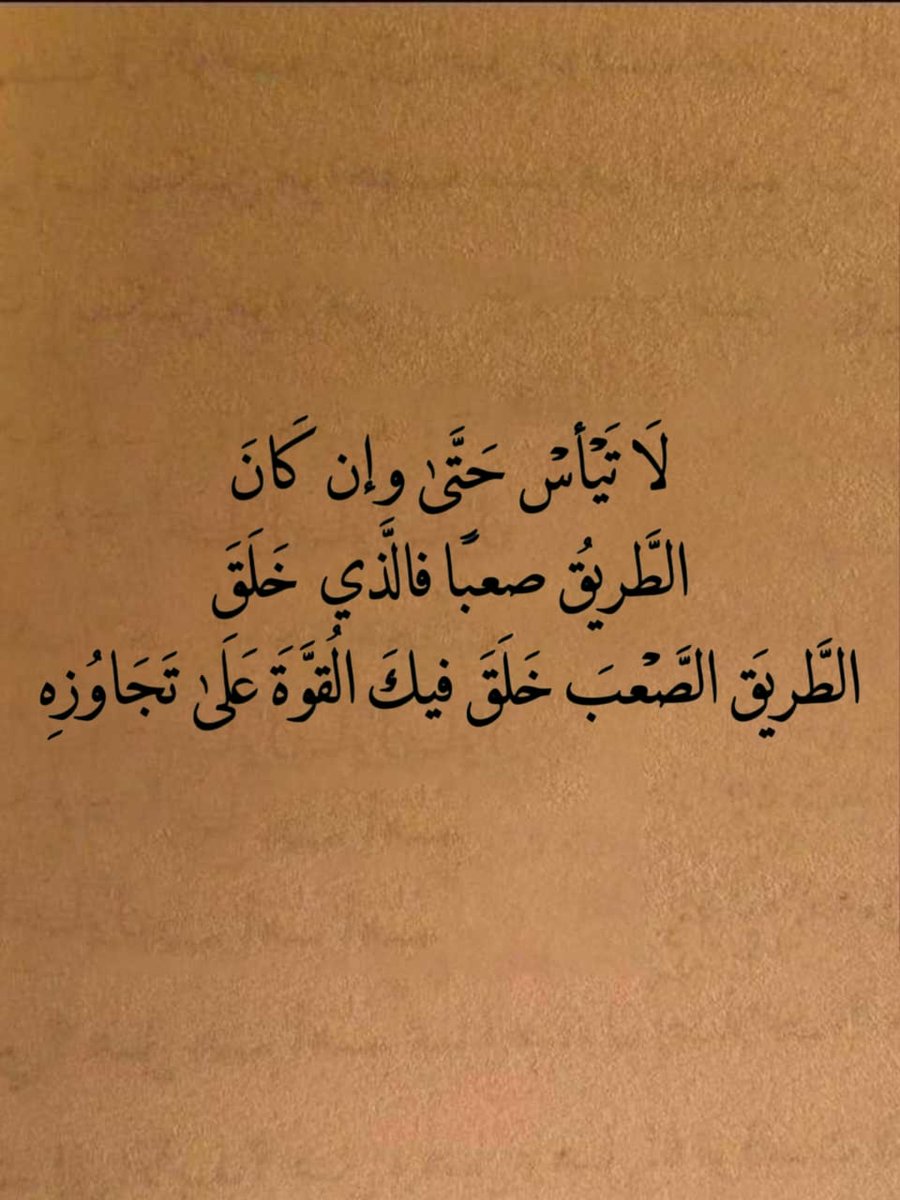 لَا تَيْأسْ حَتَّىٰ وإن كَانَ
الطَّريقُ صعبًا فالَّذي خَلَقَ
الطَّريَق الصَّعْبَ خَلَقَ فيكَ الُقوَّةَ عَلَىٰ تَجَاوُزِهِ